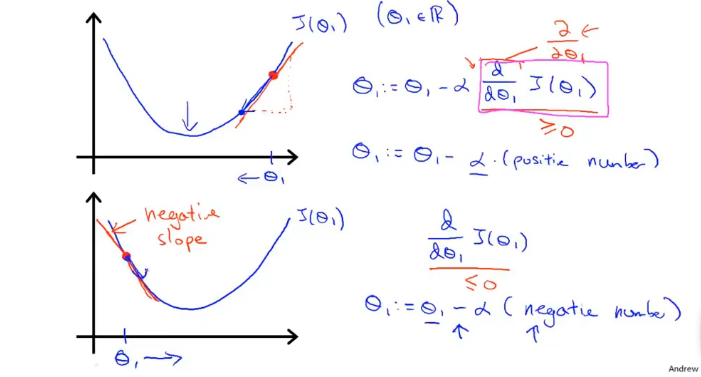 J(θ₁) (θ₁ ∈ ℝ)
∂/∂θ₁
θ₁ := θ₁ - α d/dθ₁ J(θ₁)
≥ 0
θ₁ := θ₁ - α · (positie number)
θ₁
negative
slope
J(θ₁)
d/dθ₁ J(θ₁)
≤ 0
θ₁ := θ₁ - α (negatie number)
θ₁
Andrew